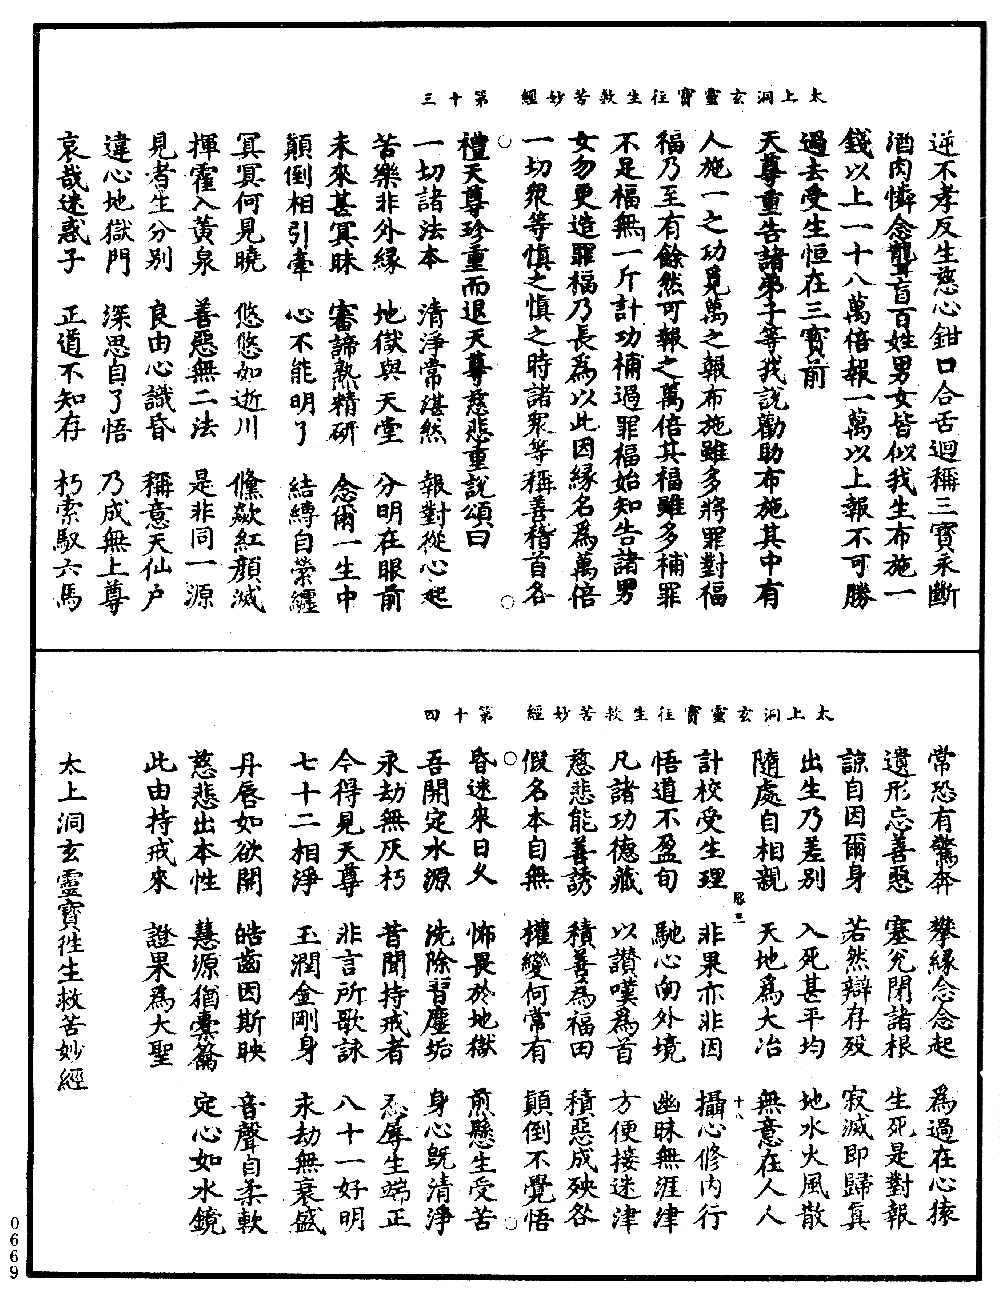 太上洞玄靈寶往生救苦妙經　第十三
逆不孝反生慈心鉗口合舌迴稱三寶永斷
酒肉憐念聾盲百姓男女皆似我生布施一
錢以上一十八萬倍報一萬以上報不可勝
過去受生恒在三寶前
天尊重告諸弟子等我說勸助布施其中有
人施一之功覓萬之報布施雖多將罪對福
福乃至有餘然可報之萬倍其福雖多補罪
不足福無一斤計功補過罪福始知告諸男
女勿更造罪福乃長為以此因緣名為萬倍
一切衆等慎之慎之時諸衆等稱善稽首各
禮天尊珍重而退天尊慈悲重說頌曰
一切諸法本　清淨常湛然　報對從心起
苦樂非外緣　地獄與天堂　分明在眼前
未來甚冥昧　審諦熟精研　念爾一生中
顛倒相引牽　心不能明了　結縛自縈纏
冥冥何見曉　悠悠如逝川　儵歘紅顏滅
揮霍入黃泉　善惡無二法　是非同一源
見者生分別　良由心識昏　稱意天仙户
違心地獄門　深思自了悟　乃成無上尊
哀哉迷惑子　正道不知存　朽索馭六馬
太上洞玄靈寶往生救苦妙經　第十四
常恐有驚奔　攀緣念念起　為過在心猿
遺形忘善惡　塞兊閉諸根　生死是對報
諒自因爾身　若然辯存殁　寂滅即歸真
出生乃差別　入死甚平均　地水火風散
隨處自相親　天地為大冶　無意在人人
豚三　十八
計校受生理　非果亦非因　攝心修内行
悟道不盈旬　馳心向外境　幽昧無涯津
凡諸功德藏　以讚嘆為首　方便接迷津
慈悲能善誘　積善為福田　積惡成殃咎
假名本自無　權變何常有　顛倒不覺悟
昏迷來日久　怖畏於地獄　煎懸生受苦
吾開定水源　洗除習塵垢　身心既清淨
永劫無灰朽　昔聞持戒者　忍辱生端正
今得見天尊　非言所歌詠　八十一好明
七十二相淨　玉潤金剛身　永劫無衰盛
丹唇如欲開　皓齒因斯映　音聲自柔軟
慈悲出本性　慧源猶橐籥　定心如水鏡
此由持戒來　證果為大聖
太上洞玄靈寶往生救苦妙經
0669